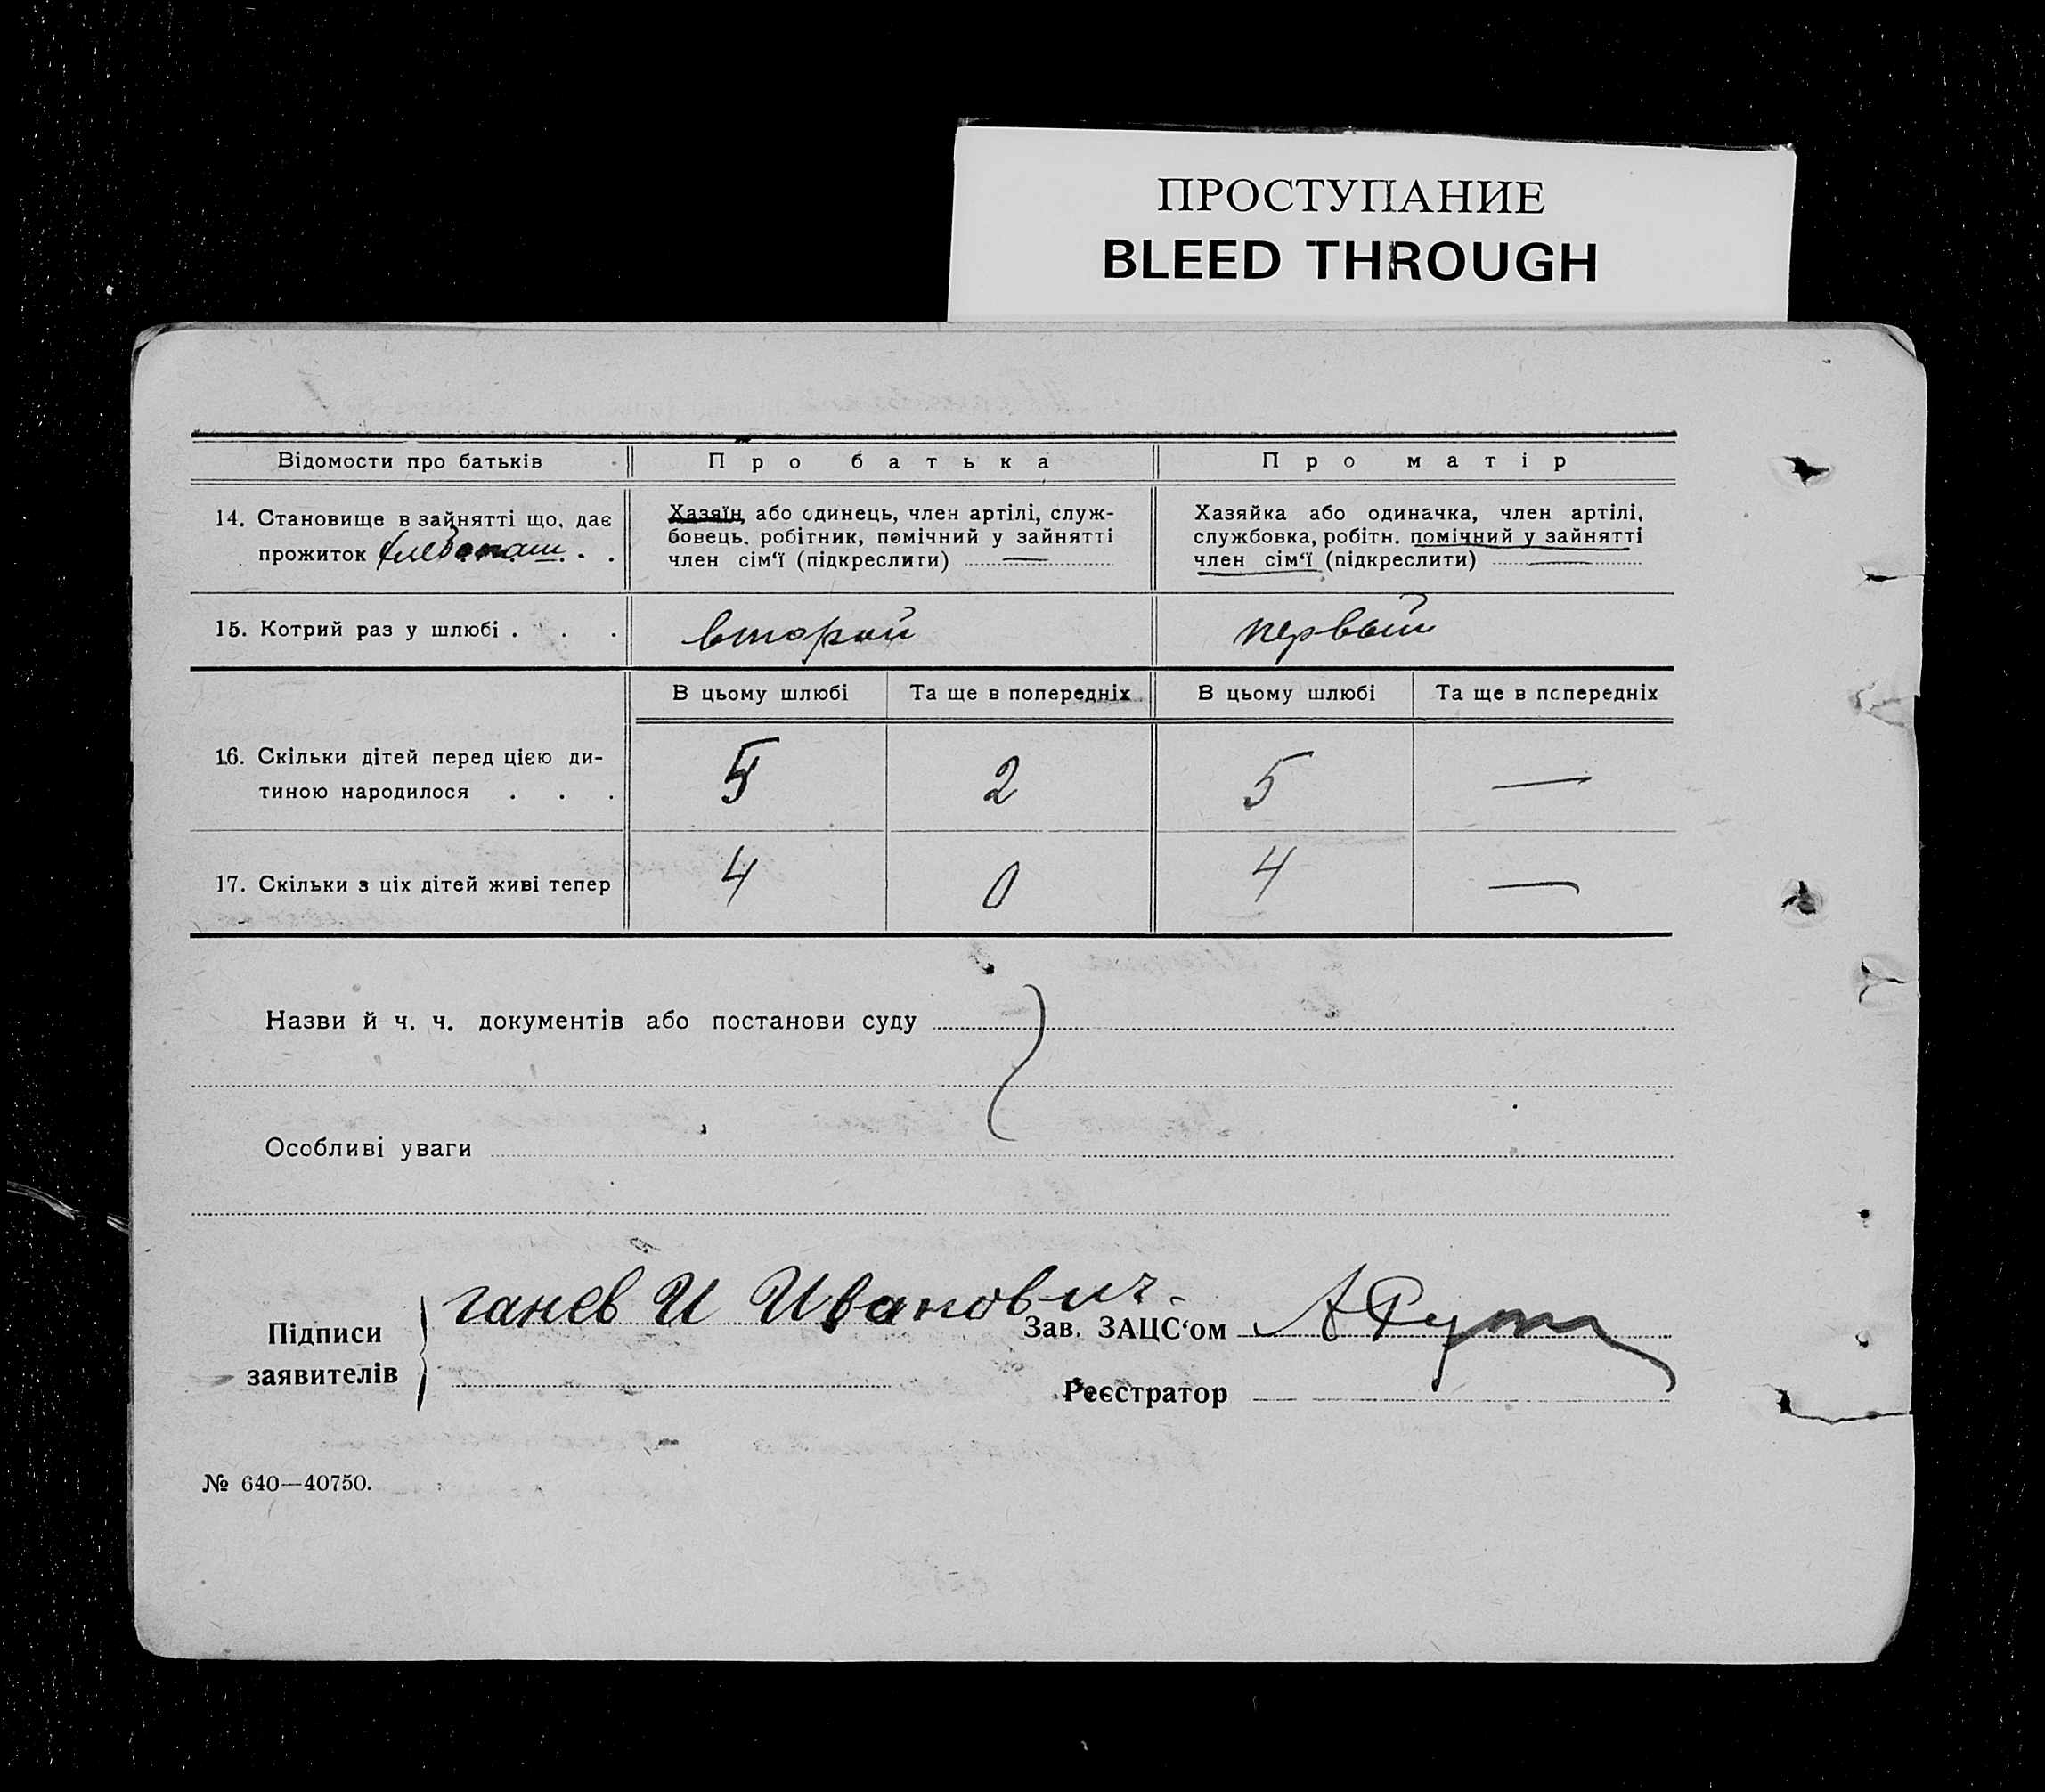 ПРОСТУПАНИЕ
BLEED THROUGH
Відомости про батьків
Про батька
Про матір
14. Становище в зайнятті що, дає
прожиток хлебопаш. . .
Хазяїн, або одинець, член артілі, служ-
бовець, робітник, помічний у зайнятті
член сім‘ї (підкреслити)
Хазяйка або одиначка, член артілі,
службовка, робітн. помічний у зайнятті
член сім‘ї (підкреслити)
15. Котрий раз у шлюбі . . .
второй
первый
В цьому шлюбі
Та ще в попередніх
В цьому шлюбі
Та ще в попередніх
16. Скільки дітей перед цією ди-
тиною народилося . . .
5
2
5
—
17. Скільки з ціх дітей живі тепер
4
0
4
—
Назви й ч. ч. документів або постанови суду
Особливі уваги
Підписи
заявителів
ганев И Иванович.
Зав. ЗАЦС‘ом
Реєстратор
№ 640—40750.